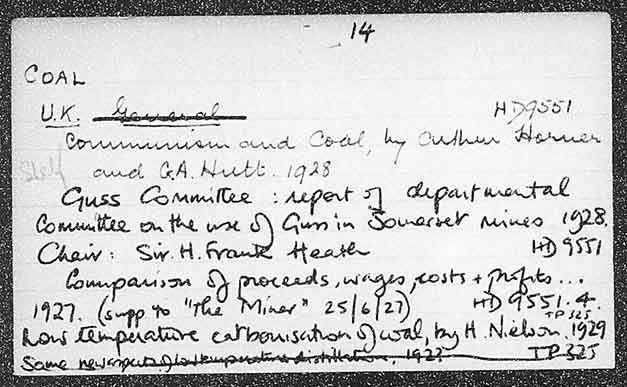 14
COAL
U.K. General HD9551
Communism and Coal, by Arthur Horner
Shelf and G.A. Hutt. 1928
Guss Committee : report of departmental
Committee on the use of Guss in Somerset mines 1928.
Chair: Sir. H. Frank Heath HD 9551
Comparison of proceeds, wages, costs + profits...
1927. (supp to "The Miner" 25/6/27) HD 9551.4.
TP 325
Low temperature carbonisation of coal, by H. Nielson. 1929
Some new aspects of low temperature distillation. 1927 TP 325